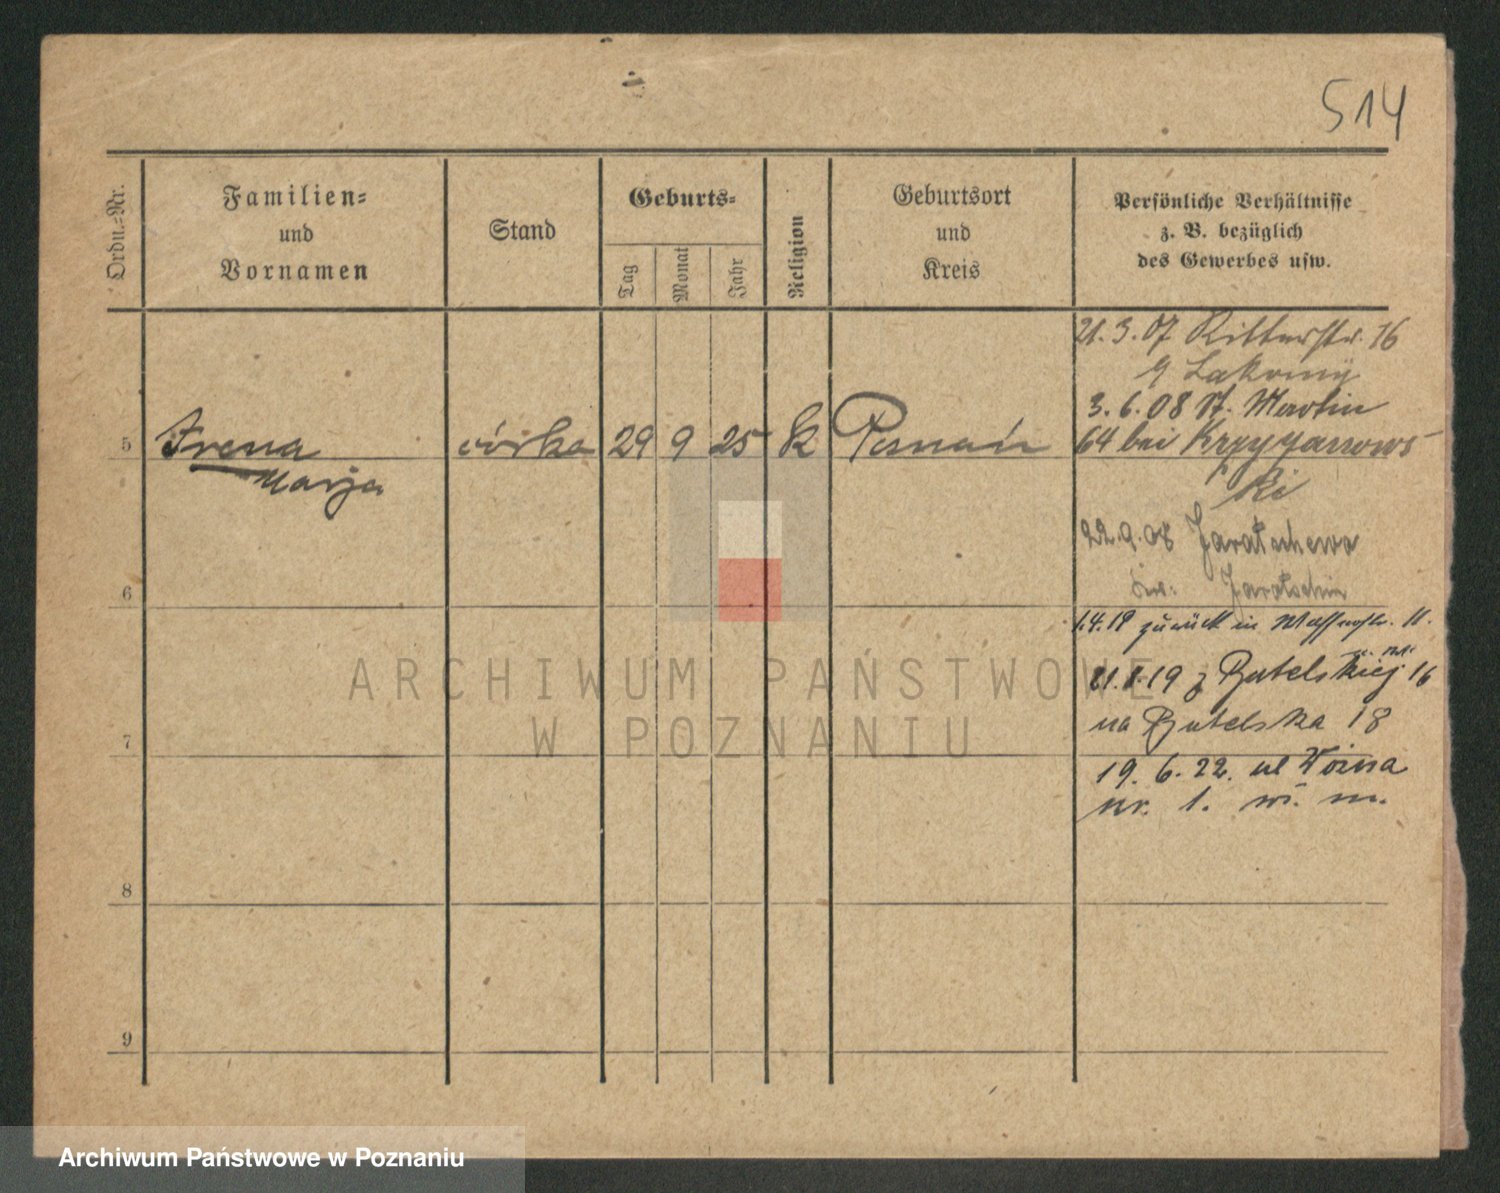 514
Ordn.-Nr.
Familien-
und
Vornamen
Stand
Geburts-
Tag
Monat
Jahr
Religion
Geburtsort
und
Kreis
Persönliche Verhältnisse
z. B. bezüglich
des Gewerbes usw.
5 Irena córka 29 9 25 k Poznań
Marja
21.3.07 Ritterstr. 16
Lakomy
3.6.08 St. Martin
64 bei
ki
22.9.08 Jaratschewo
Jarotschin
1.4.19 zurück in 11.
19 z Butelskiej 16
na Butelska 18
19. 6. 22. ul Woźna
nr. 1. w. m.
6
7
8
9
ARCHIWUM PAŃSTWOWE
W POZNANIU
Archiwum Państwowe w Poznaniu